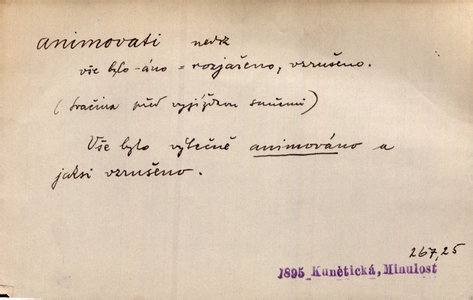 animovati nedk
vše bylo -áno = rozjařeno, vzrušeno.
(svačina před vyjížďkou saněmi)
Vše bylo výtečně animováno a
jaksi vzrušeno.
267,25
1895 Kunětická, Minulost